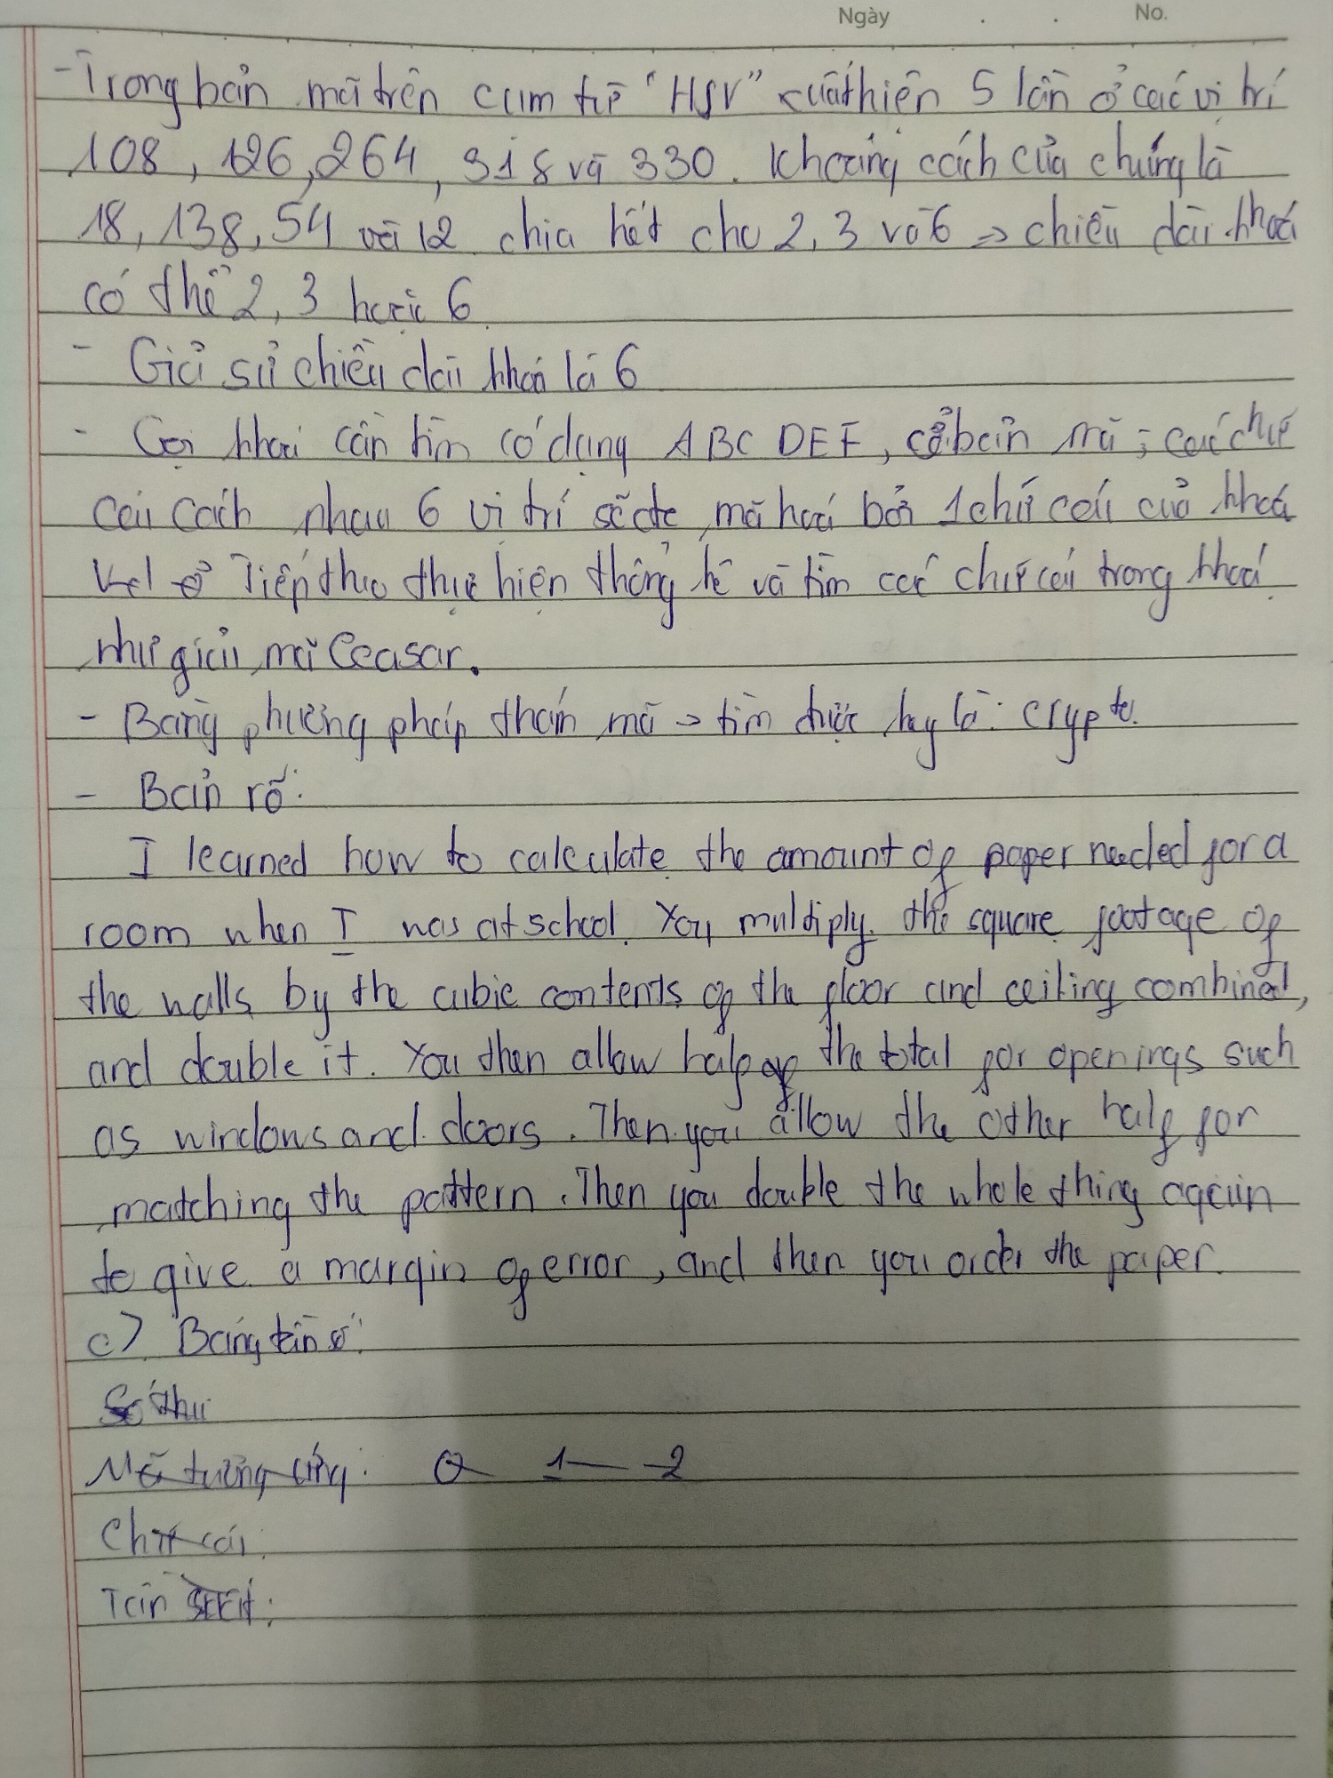 Ngày . . No.
- Trong bản mã trên cụm từ "HSV" xuất hiện 5 lần ở các vị trí
108, 126, 264, 318 và 330. Khoảng cách của chúng là
18, 138, 54 và 12 chia hết cho 2, 3 và 6 => chiều dài khoá
có thể 2, 3 hoặc 6
- Giả sử chiều dài khoá là 6
- Gọi khoá cần tìm có dạng ABC DEF, cả bản mã ; các chữ
cái cách nhau 6 vị trí sẽ đc mã hoá bởi 1 chữ cái của khoá
Tiếp theo thực hiện thống kê và tìm các chữ cái trong khoá
như giải mã Ceasar.
- Bằng phương pháp thám mã -> tìm được key là: crypto.
- Bản rõ:
I learned how to calculate the amount of paper needed for a
room when I was at school. You multiply the square footage of
the walls by the cubic contents of the floor and ceiling combined,
and double it. You then allow half of the total for openings such
as windows and doors. Then you allow the other half for
matching the pattern. Then you double the whole thing again
to give a margin of error, and then you order the paper.
c) Bảng tần số:
Số thứ
Mã tương ứng: 0 1 2
Chữ cái:
Tần